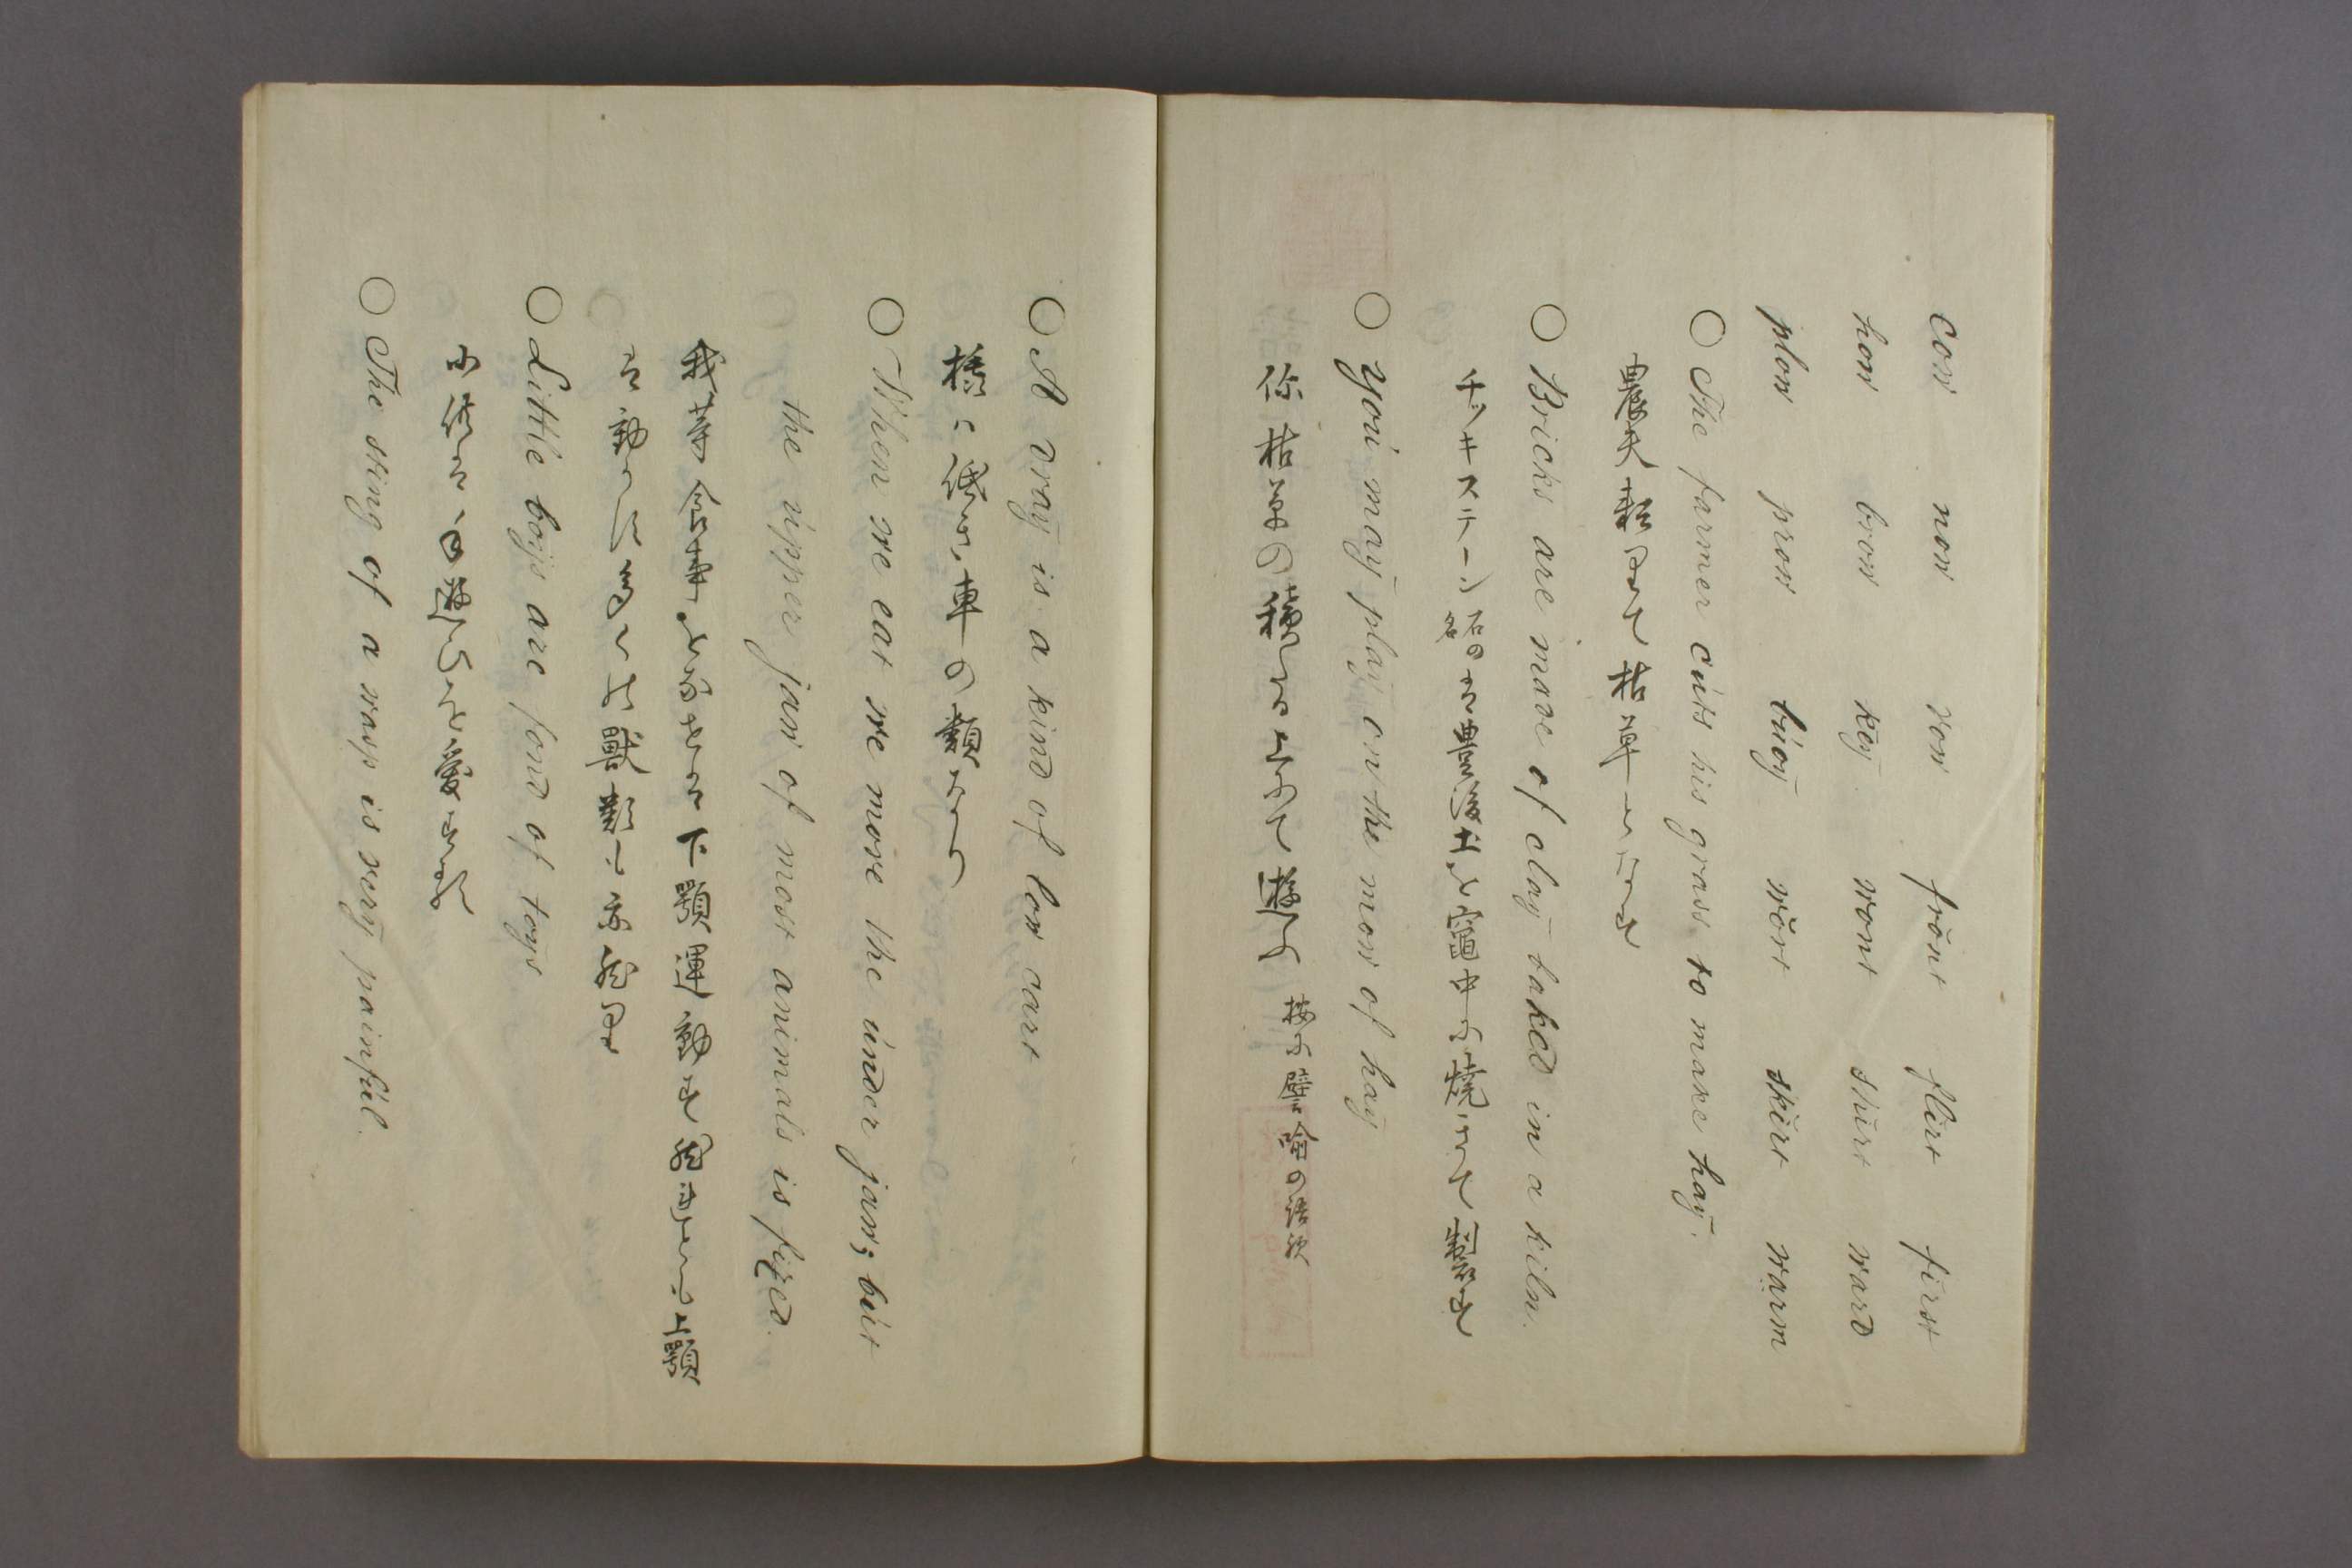 cow now vow front flirt first
how brow key wont shirt ward
plow prow buoy wort skirt warm
○ The farmer cuts his grass to make hay.
農夫耕りて枯草となす
○ Bricks are made of clay baked in a kiln.
チッキステーン石の名は豊後土を竈中に燒きて製す
○ You may play on the mow of hay
你枯草の積る上にて遊ふ 按に譬喩の語歟
○ A dray is a kind of low cart
橇ハ低き車の類なり
○ When we eat we move the under jaw; but
the upper jaw of most animals is fixed.
我等食事を為せるは下顎運動す然れとも上顎
は動かに多くの獸類も亦然り
○ Little boys are fond of toys
小供は手遊ひを愛する
○ The sting of a wasp is very painful.